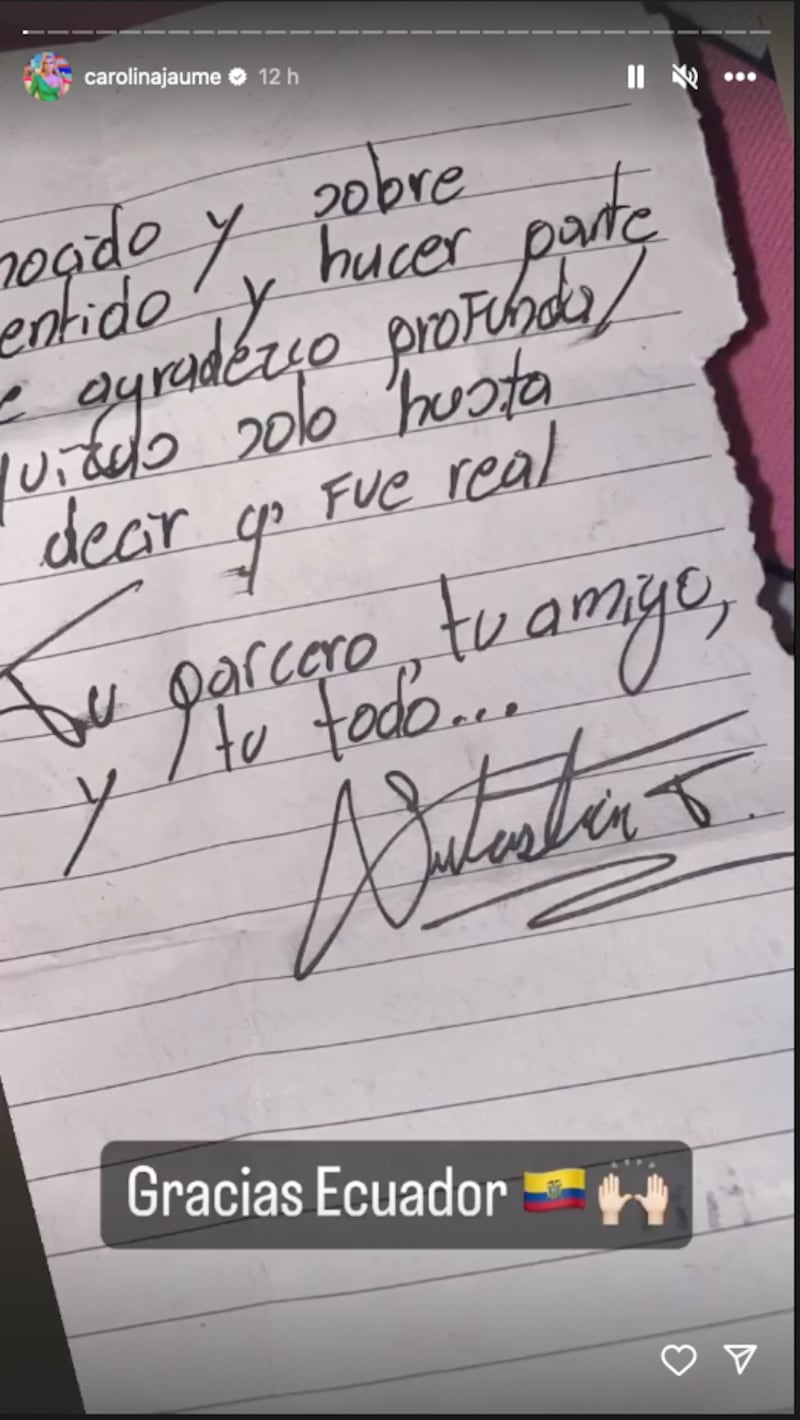 carolinajaume 12 h
nocido y sobre
entido y hacer parte
e agradezco profunda/
quitado solo hasta
decir q' fue real
Tu parcero, tu amigo,
y tu todo...
Gracias Ecuador 🇪🇨 🙌🏻